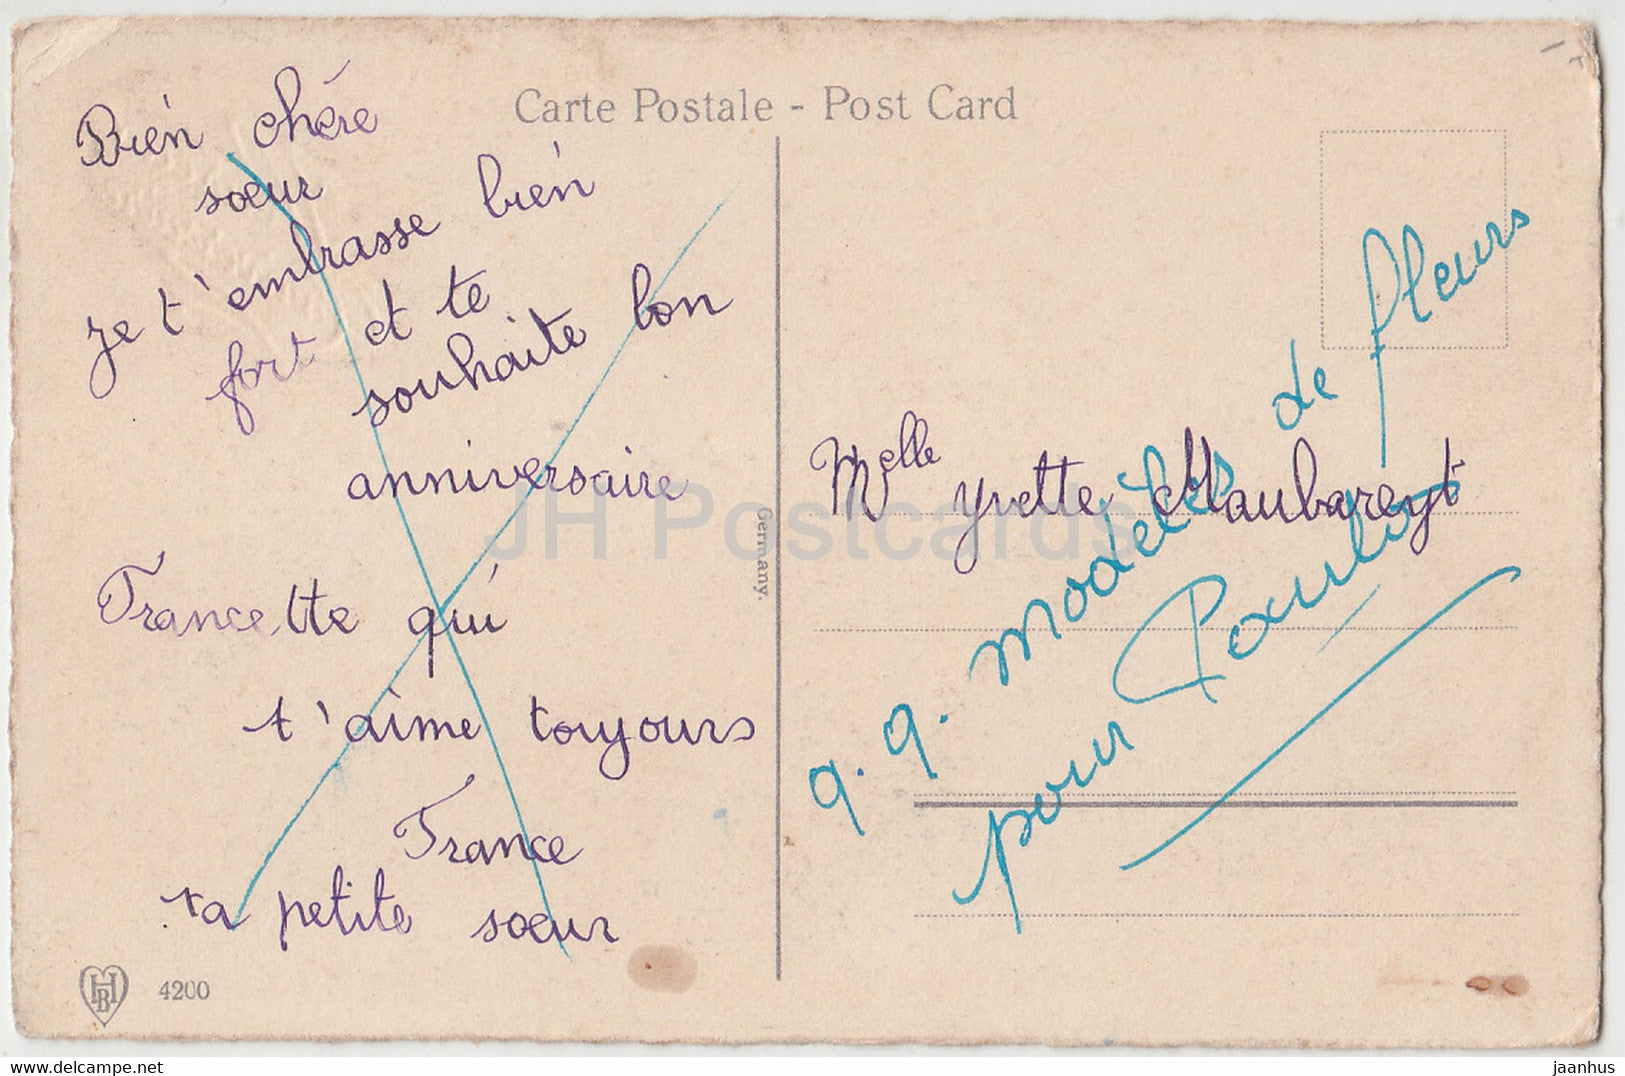 Carte Postale - Post Card
Bien chère
sœur
je t'embrasse bien
fort et te
souhaite bon
anniversaire
Francette qui
t'aime toujours
France
ta petite sœur
HB
4200
Germany.
Melle Yvette Maubareyt
q.q. modèles de fleurs
pour
JH Postcards
jaanhus